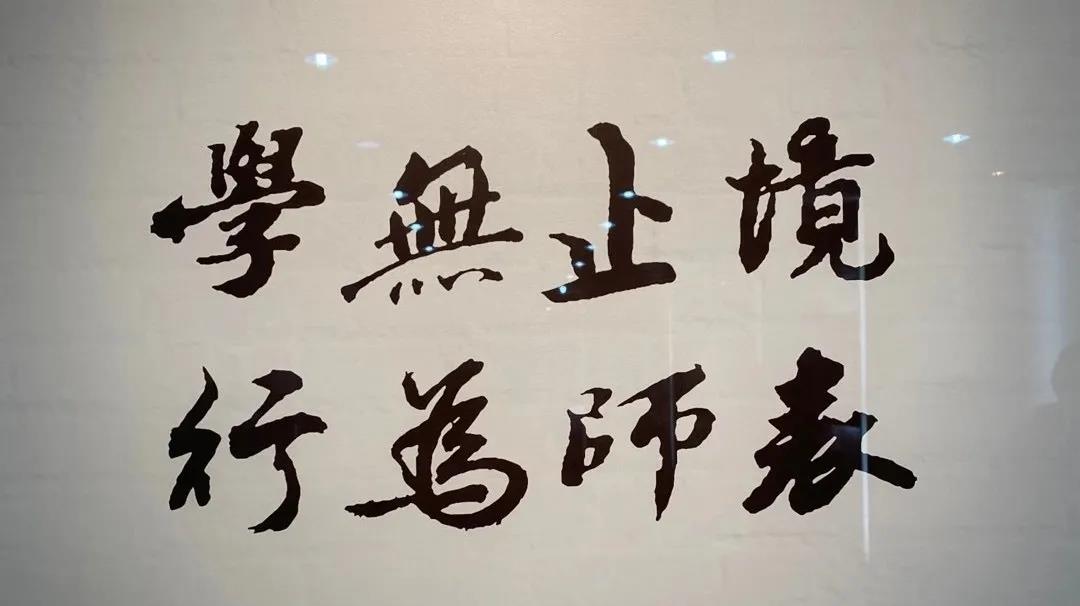 學無止境
行為師表